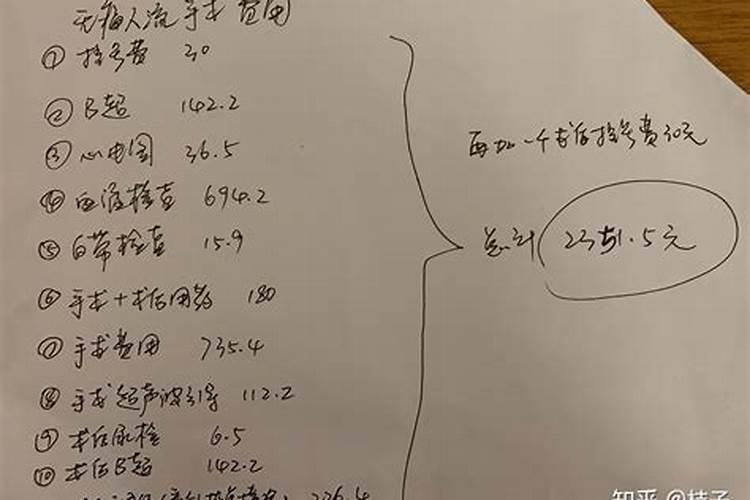 无痛人流手术费用
① 挂号费 30
② B超 142.2
③ 心电图 36.5
④ 血液检查 694.2
⑤ 白带检查 15.9
⑥ 手术+术后用药 180
⑦ 手术费用 735.4
⑧ 手术超声波引导 112.2
⑨ 术后尿检 6.5
⑩ 术后B超 142.2
236.4
再加一个术后挂号费30元
总计 2351.5元
知乎 @桔子